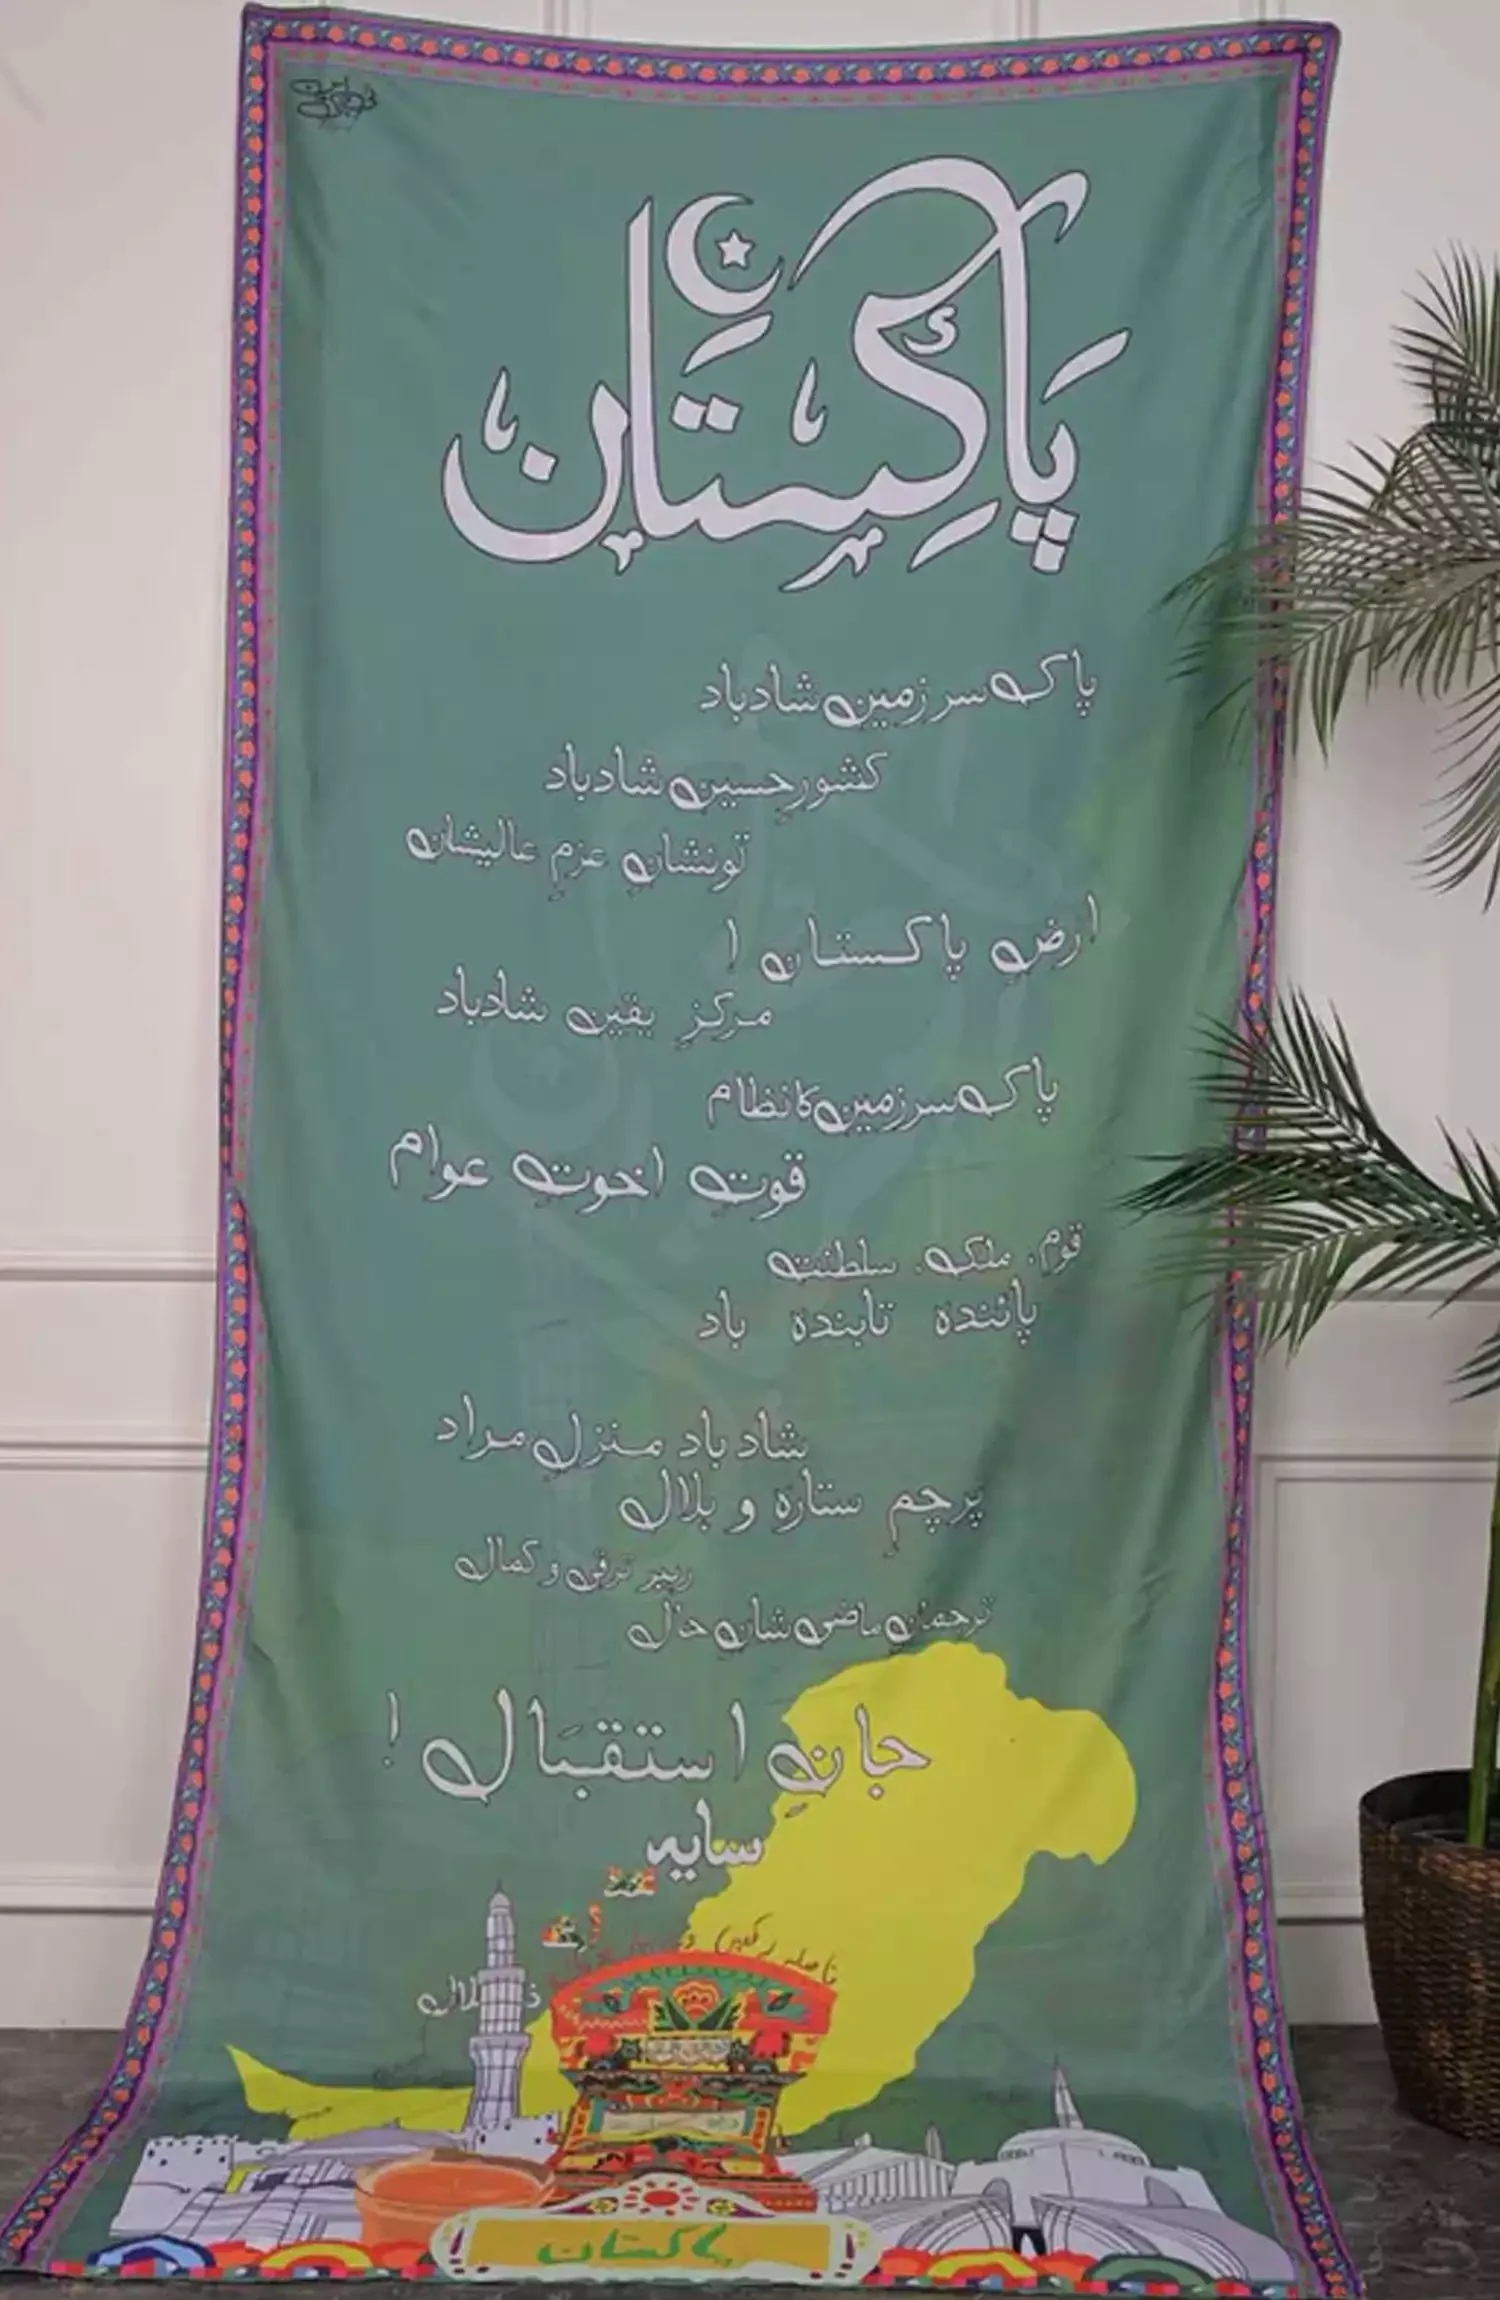 پاکستان
پاک سرزمین شادباد
کشورِ حسین شادباد
تو نشانِ عزمِ عالیشان
ارضِ پاکستان !
مرکزِ یقین شادباد
پاک سرزمین کا نظام
قوتِ اخوتِ عوام
قوم، ملک، سلطنت
پائندہ تابندہ باد
شاد باد منزلِ مراد
پرچمِ ستارہ و ہلال
رہبر ترقی و کمال
ترجمان ماضی شان حال
جانِ استقبال !
سایہ
پاکستان